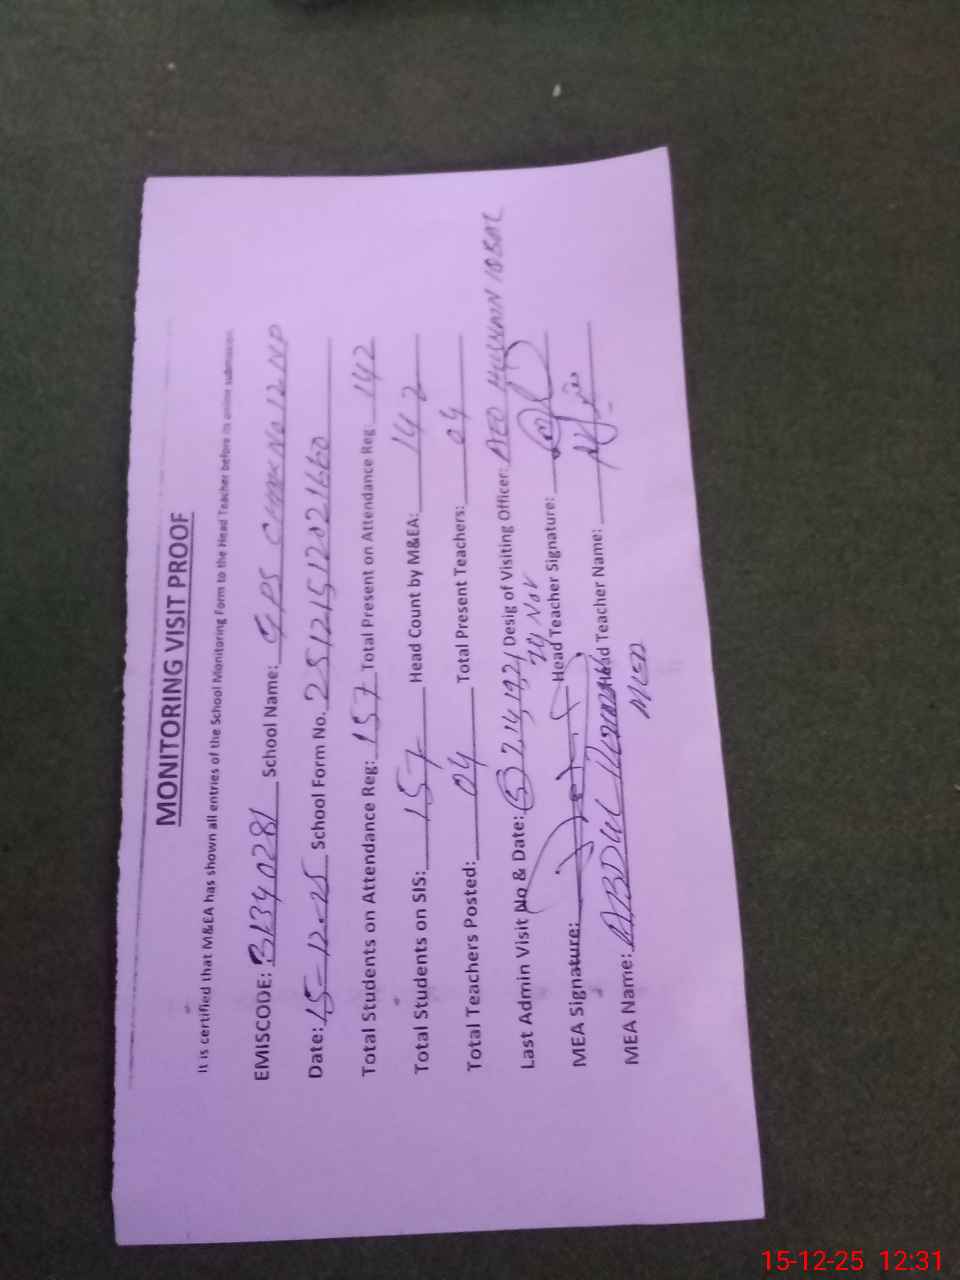 MONITORING VISIT PROOF
It is certified that M&EA has shown all entries of the School Monitoring Form to the Head Teacher before its online submission.
EMISCODE: 31340281 School Name: GPS CHAK No 12 NP
Date: 15-12-25 School Form No. 251215120216
Total Students on Attendance Reg: 157 Total Present on Attendance Reg: 142
Total Students on SIS: 157 Head Count by M&EA: 142
Total Teachers Posted: 04 Total Present Teachers: 04
Last Admin Visit No & Date: (5) 7,14,19,21 Desig of Visiting Officer: AEO
24 Nov
MEA Signature: Head Teacher Signature:
MEA Name: ABDUL Head Teacher Name:
15-12-25 12:31